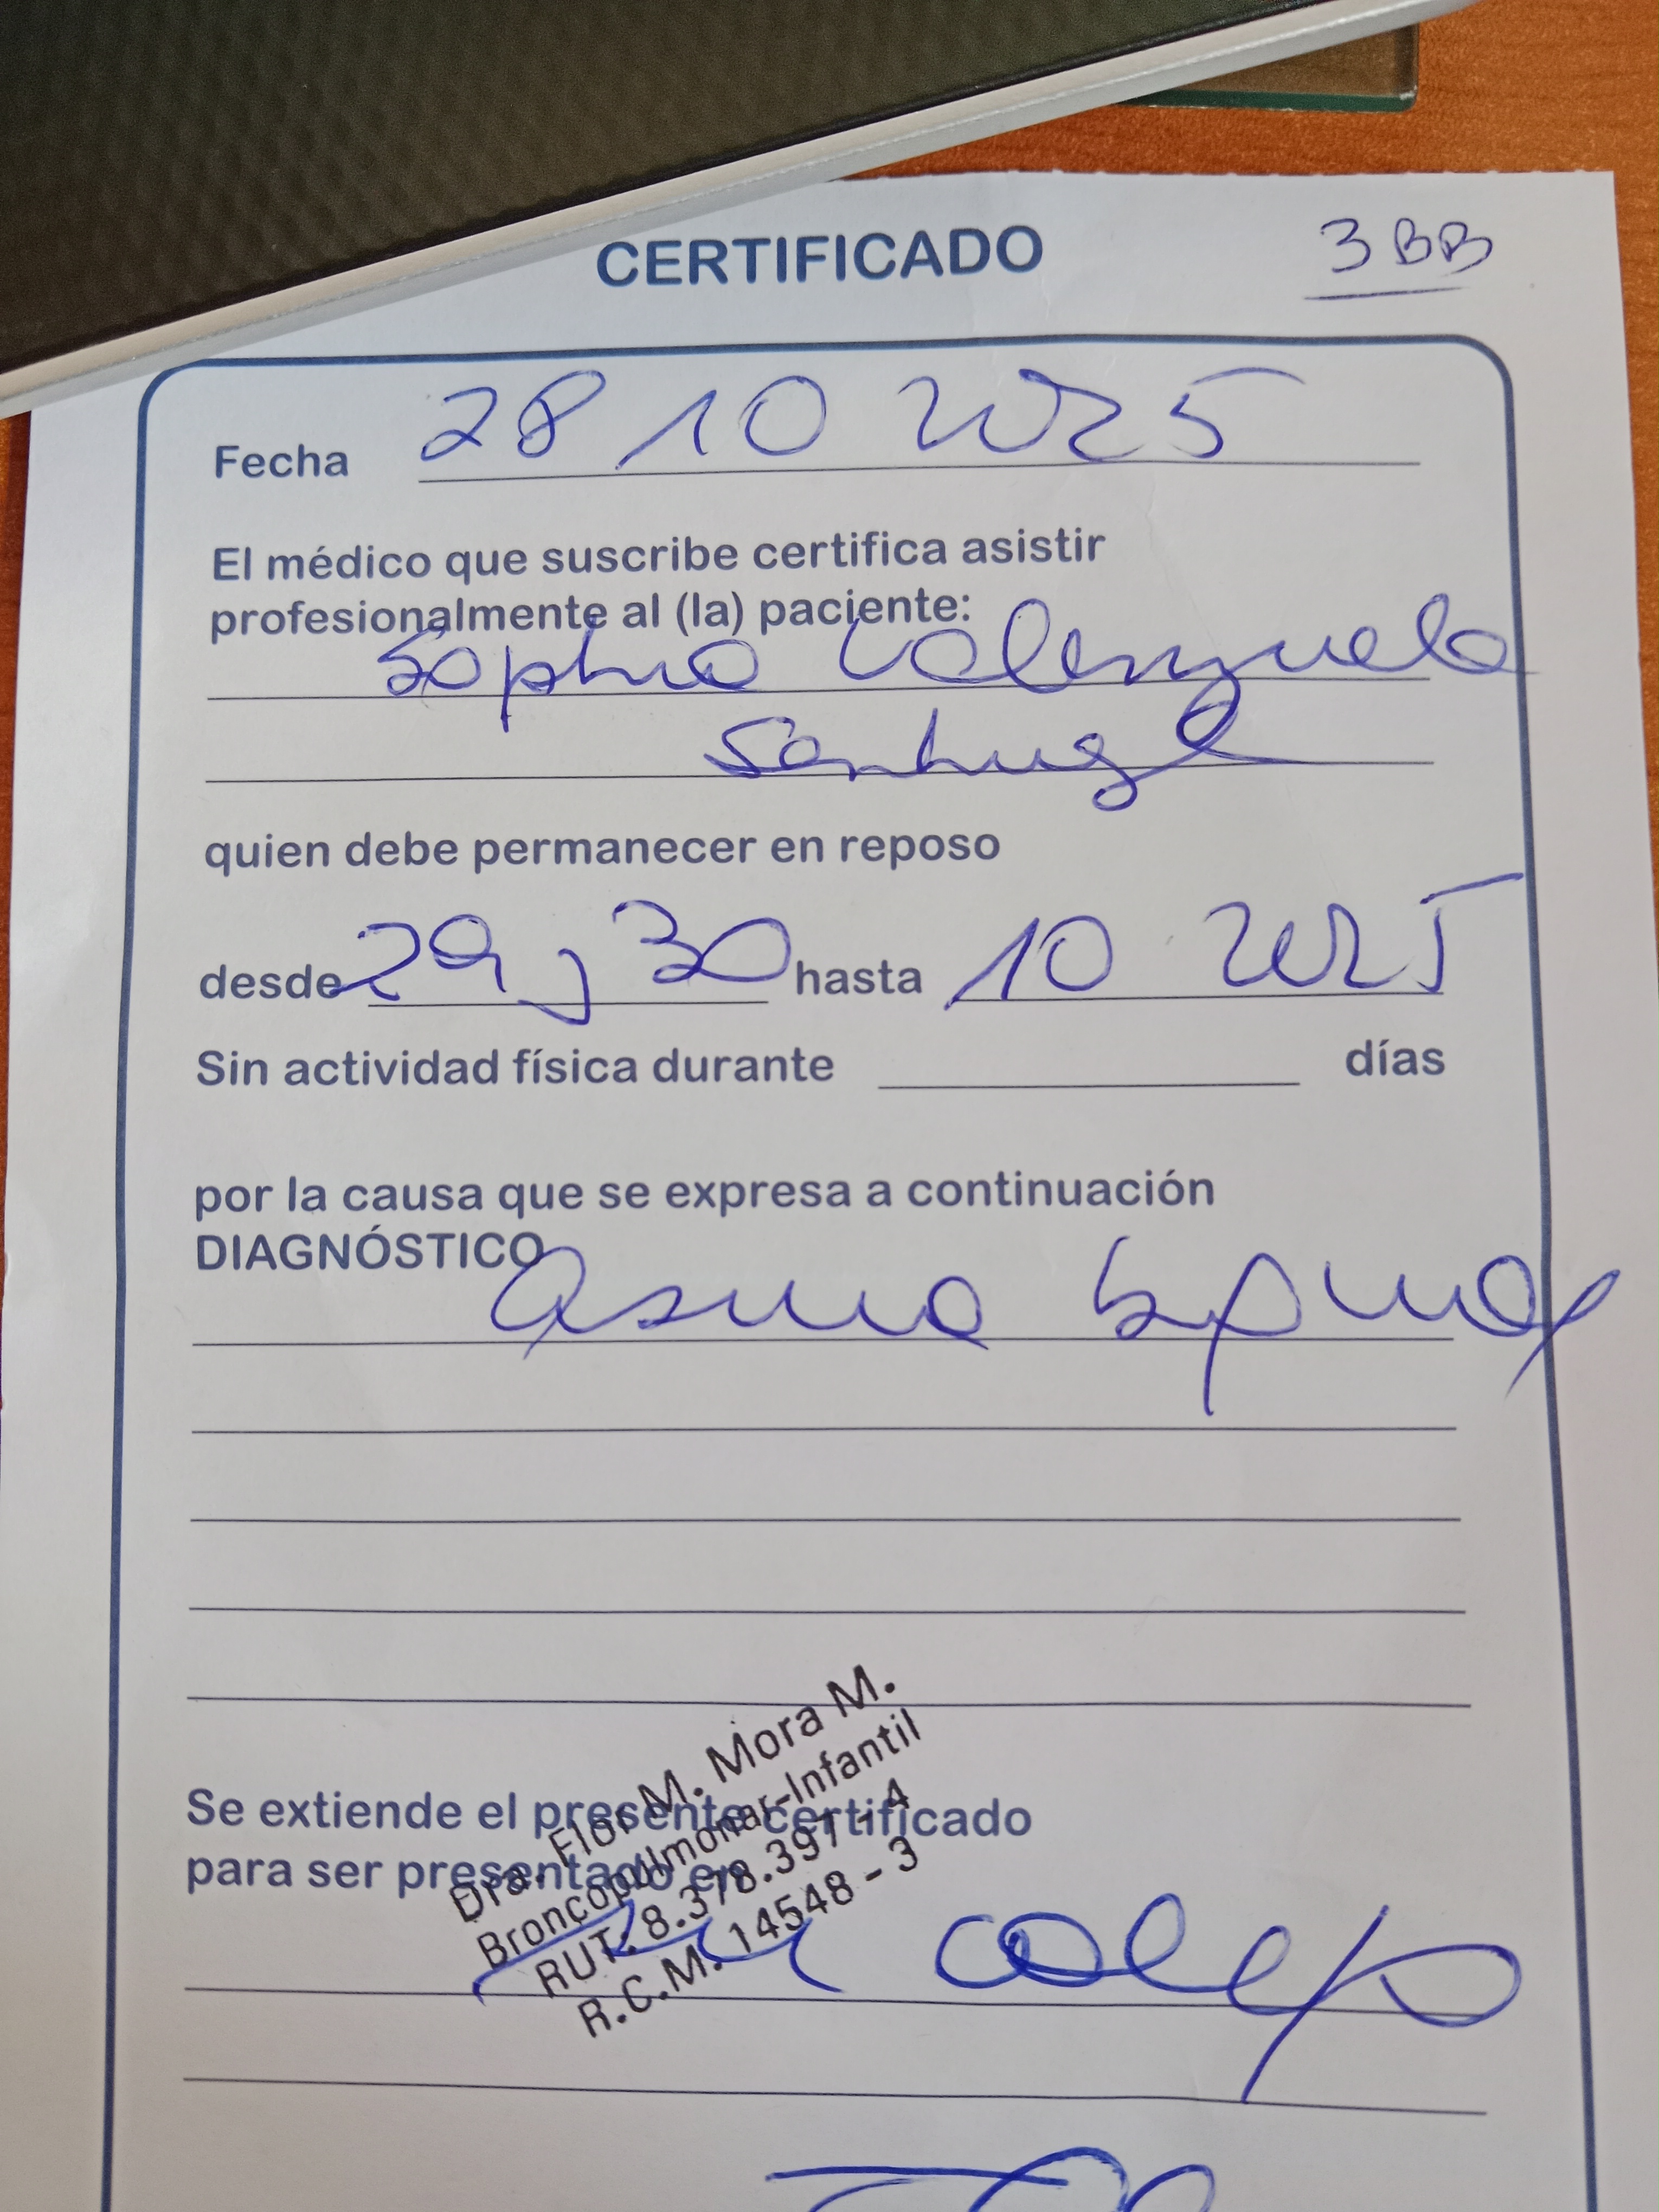 CERTIFICADO
3 BB
Fecha 28 10 2025
El médico que suscribe certifica asistir
profesionalmente al (la) paciente:
Sophia Valenzuela
quien debe permanecer en reposo
desde 29 y 30 hasta 10 2025
Sin actividad física durante días
por la causa que se expresa a continuación
DIAGNÓSTICO
asma
Se extiende el presente certificado
para ser presentado en
colegio
Dra. Flor M. Mora M.
Broncopulmonar-Infantil
RUT: 8.378.397 - 4
R.C.M. 14548 - 3